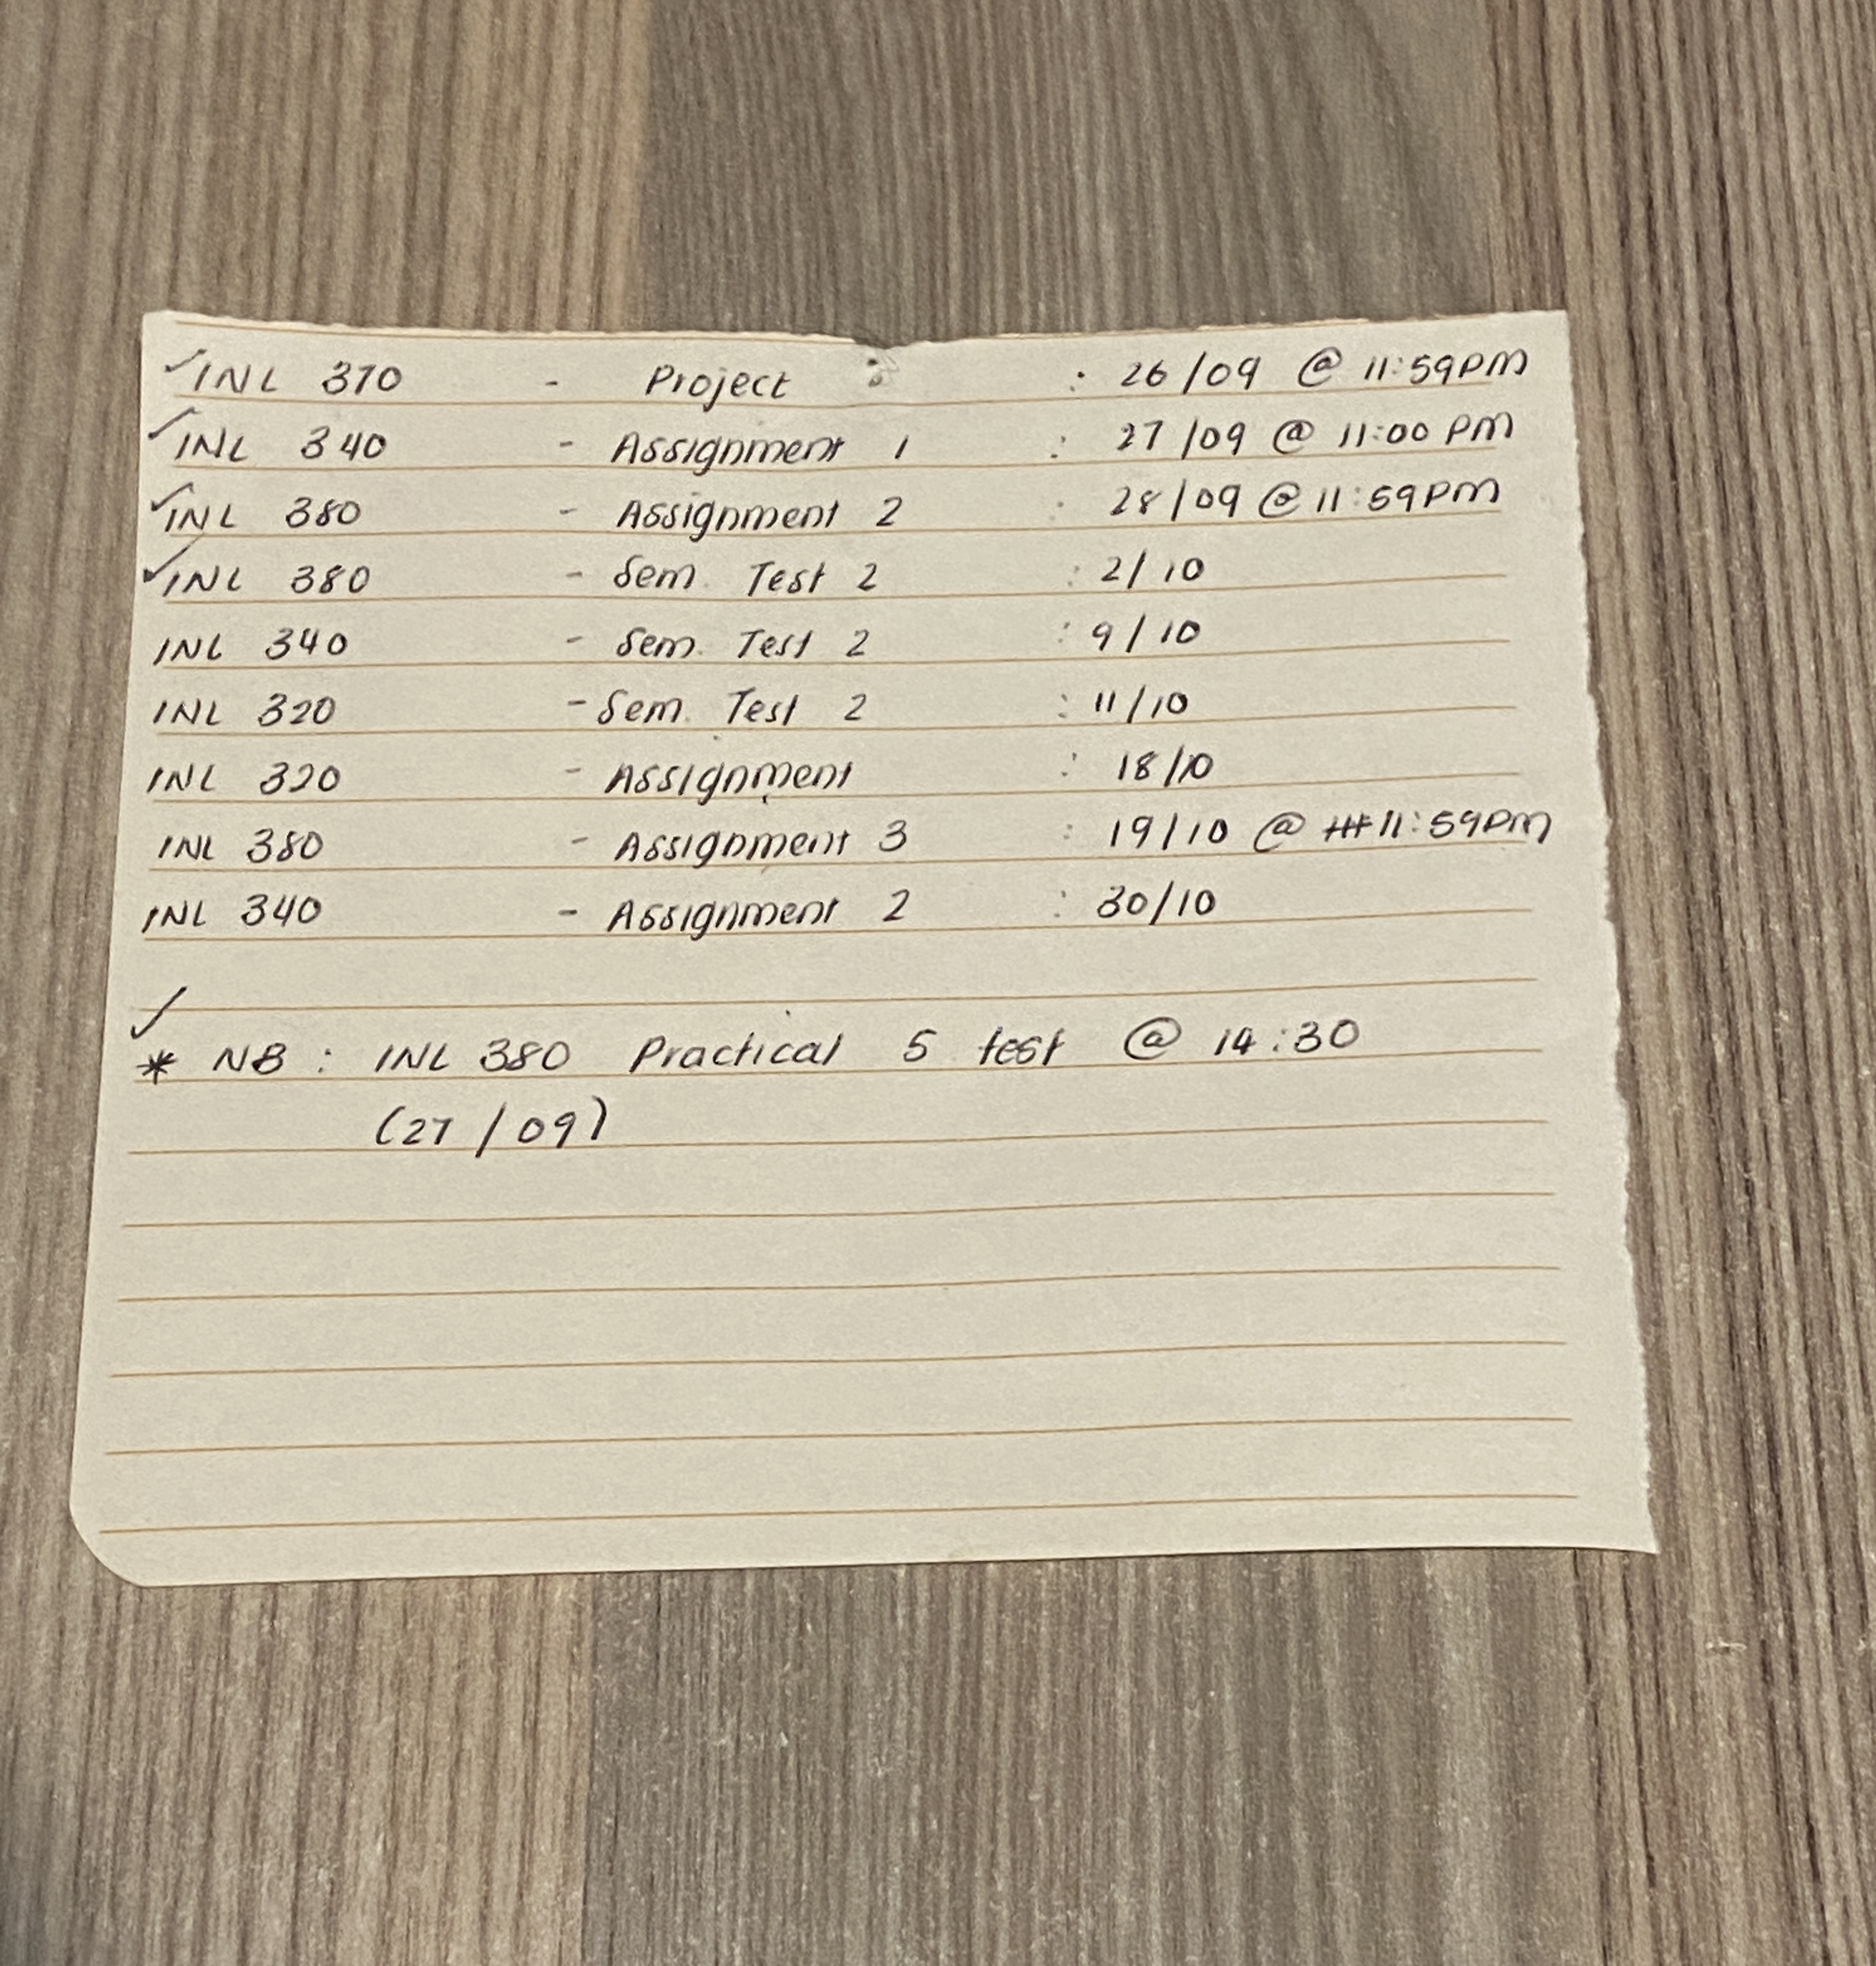 ✓ INL 370 - Project : 26/09 @ 11:59PM
✓ INL 340 - Assignment 1 : 27/09 @ 11:00 PM
✓ INL 380 - Assignment 2 : 28/09 @ 11:59PM
✓ INL 380 - Sem. Test 2 : 2/10
INL 340 - Sem. Test 2 : 9/10
INL 320 - Sem. Test 2 : 11/10
INL 320 - Assignment : 18/10
INL 380 - Assignment 3 : 19/10 @ 11:59PM
INL 340 - Assignment 2 : 30/10
✓
* NB : INL 380 Practical 5 test @ 14:30
(27/09)